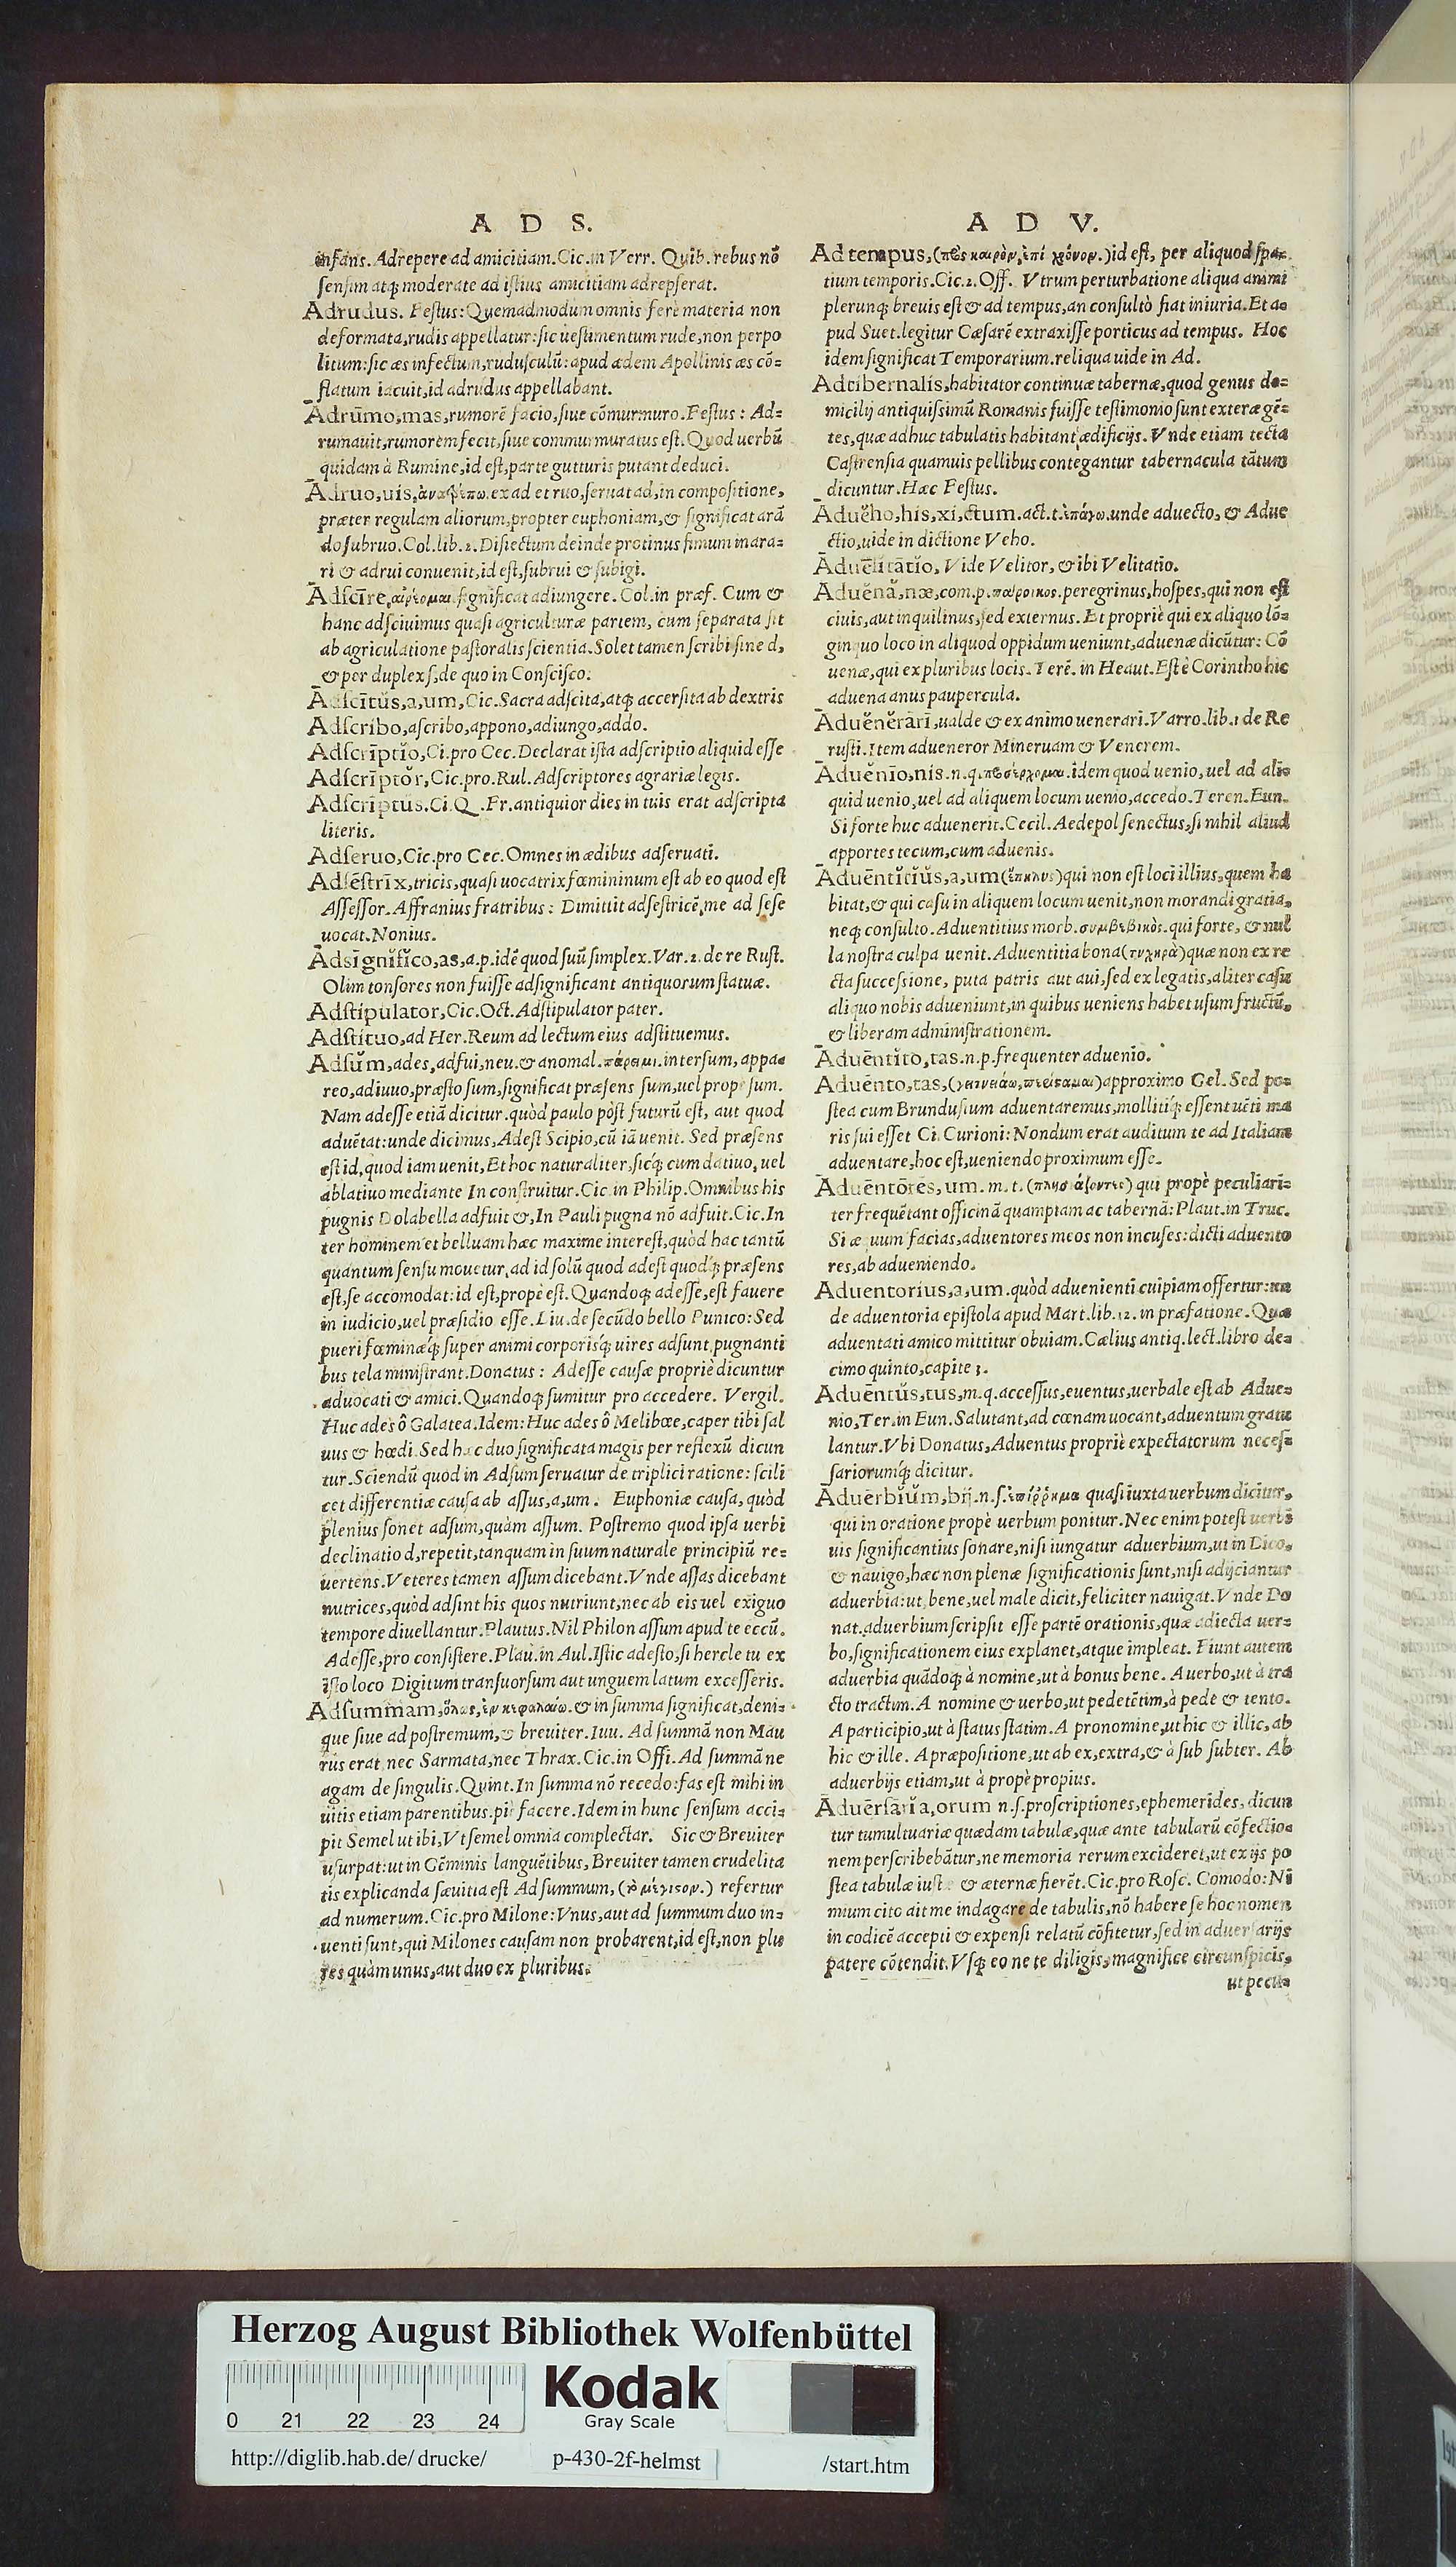 A D S.
infans. Adrepere ad amicitiam. Cic. in Verr. Quib. rebus nō
ſenſim atq; moderate ad iſtius amicitiam adrepſerat.
Adrudus. Feſtus: Quemadmodum omnis ferè materia non
deformata, rudis appellatur: ſic ueſtimentum rude, non perpo
litum: ſic æs infectum, ruduſculū: apud ædem Apollinis æs cō=
flatum iacuit, id adrudus appellabant.
Adrūmo, mas, rumorē facio, ſiue cōmurmuro. Feſtus: Ad=
rumauit, rumorem fecit, ſiue commurmuratus eſt. Quod uerbū
quidam à Rumine, id eſt, parte gutturis putant deduci.
Adruo, uis, ἀνατρέπω. ex ad et ruo, ſeruat ad, in compoſitione,
præter regulam aliorum, propter euphoniam, & ſignificat arā
do ſubruo. Col. lib. 2. Diſiectum deinde protinus fimum inara=
ri & adrui conuenit, id eſt, ſubrui & ſubigi.
Adſcīre, αἱρέομαι. ſignificat adiungere. Col. in præf. Cum &
hanc adſciuimus quaſi agriculturæ partem, cum ſeparata ſit
ab agriculatione paſtoralis ſcientia. Solet tamen ſcribi ſine d,
& per duplex ſ, de quo in Conſciſco.
Adſcītŭs, a, um, Cic. Sacra adſcita, atq; accerſita ab dextris
Adſcribo, aſcribo, appono, adiungo, addo.
Adſcrīptĭo, Ci. pro Cec. Declarat iſta adſcriptio aliquid eſſe
Adſcrīptŏr, Cic. pro. Rul. Adſcriptores agrariæ legis.
Adſcrīptŭs. Ci. Q. Fr. antiquior dies in tuis erat adſcripta
literis.
Adſeruo, Cic. pro Cec. Omnes in ædibus adſeruati.
Adſēſtrīx, tricis, quaſi uocatrix fœmininum eſt ab eo quod eſt
Aſſeſſor. Affranius fratribus: Dimittit adſeſtricē, me ad ſeſe
uocat. Nonius.
Adſīgnĭfĭco, as, a. p. idē quod ſuū ſimplex. Var. 2. de re Ruſt.
Olim tonſores non fuiſſe adſignificant antiquorum ſtatuæ.
Adſtipulator, Cic. Oct. Adſtipulator pater.
Adſtituo, ad Her. Reum ad lectum eius adſtituemus.
Adſŭm, ades, adfui, neu. & anomal. πάρειμι. interſum, appa=
reo, adiuuo, præſto ſum, ſignificat præſens ſum, uel prope ſum.
Nam adeſſe etiā dicitur. quòd paulo pòſt futurū eſt, aut quod
aduētat: unde dicimus, Adeſt Scipio, cū iā uenit. Sed præſens
eſt id, quod iam uenit, Et hoc naturaliter, ſicq́; cum datiuo, uel
ablatiuo mediante In conſtruitur. Cic. in Philip. Omnibus his
pugnis Dolabella adfuit &, In Pauli pugna nō adfuit. Cic. In
ter hominem et belluam hæc maxime intereſt, quòd hæc tantū
quantum ſenſu mouetur, ad id ſolū quod adeſt quodq́; præſens
eſt, ſe accomodat: id eſt, propè eſt. Quandoq; adeſſe, eſt fauere
in iudicio, uel præſidio eſſe. Liu. de ſecūdo bello Punico: Sed
pueri fœminæq́; ſuper animi corporisq́; uires adſunt, pugnanti
bus tela miniſtrant. Donatus: Adeſſe cauſæ propriè dicuntur
aduocati & amici. Quandoq; ſumitur pro accedere. Vergil.
Huc ades ô Galatea. Idem: Huc ades ô Melibœe, caper tibi ſal
uus & hœdi. Sed hæc duo ſignificata magis per reflexū dicun
tur. Sciendū quod in Adſum ſeruatur de triplici ratione: ſcili
cet differentiæ cauſa ab aſſus, a, um. Euphoniæ cauſa, quòd
plenius ſonet adſum, quàm aſſum. Poſtremo quod ipſa uerbi
declinatio d, repetit, tanquam in ſuum naturale principiū re=
uertens. Veteres tamen aſſum dicebant. Vnde aſſas dicebant
nutrices, quòd adſint his quos nutriunt, nec ab eis uel exiguo
tempore diuellantur. Plautus. Nil Philon aſſum apud te eccū.
Adeſſe, pro conſiſtere. Plau. in Aul. Iſtic adeſto, ſi hercle tu ex
iſto loco Digitum tranſuorſum aut unguem latum exceſſeris.
Adſummam, ὅλως, ἐν κεφαλαίῳ. & in ſumma ſignificat, deni=
que ſiue ad poſtremum, & breuiter. Iuu. Ad ſummā non Mau
rus erat, nec Sarmata, nec Thrax. Cic. in Offi. Ad ſummā ne
agam de ſingulis. Quint. In ſumma nō recedo: fas eſt mihi in
uitis etiam parentibus. piè facere. Idem in hunc ſenſum acci=
pit Semel ut ibi, Vt ſemel omnia complectar. Sic & Breuiter
uſurpat: ut in Gēminis languētibus, Breuiter tamen crudelita
tis explicanda ſæuitia eſt Ad ſummum, (τὸ μέγιστον.) refertur
ad numerum. Cic. pro Milone: Vnus, aut ad ſummum duo in=
uenti ſunt, qui Milones cauſam non probarent, id eſt, non plu
res quàm unus, aut duo ex pluribus.
A D V.
Ad tempus, (πρὸς καιρὸν, ἐπὶ χρόνον.) id eſt, per aliquod ſpa=
tium temporis. Cic. 1. Off. Vtrum perturbatione aliqua animi
plerunq; breuis eſt & ad tempus, an conſultò fiat iniuria. Et a=
pud Suet. legitur Cæſarē extraxiſſe porticus ad tempus. Hoc
idem ſignificat Temporarium. reliqua uide in Ad.
Adtibernalis, habitator continuæ tabernæ, quod genus do=
micilij antiquiſsimū Romanis fuiſſe teſtimonio ſunt exteræ gē=
tes, quæ adhuc tabulatis habitant ædificijs. Vnde etiam tecta
Caſtrenſia quamuis pellibus contegantur tabernacula tātum
dicuntur. Hæc Feſtus.
Aduĕho, his, xi, ctum. act. t. ἐπάγω. unde aduecto, & Adue
ctio, uide in dictione Veho.
Aduēlĭtātĭo, Vide Velitor, & ibi Velitatio.
Aduĕnă, næ, com. p. πάροικος. peregrinus, hoſpes, qui non eſt
ciuis, aut inquilinus, ſed externus. Et propriè qui ex aliquo lō=
ginquo loco in aliquod oppidum ueniunt, aduenæ dicūtur: Cō
uenæ, qui ex pluribus locis. Terē. in Heaut. Eſt è Corintho hic
aduena anus paupercula.
Aduĕnĕrārī, ualde & ex animo uenerari. Varro. lib. 1 de Re
ruſti. Item adueneror Mineruam & Venerem.
Aduĕnĭo, nis. n. q. προσέρχομαι. idem quod uenio, uel ad ali=
quid uenio, uel ad aliquem locum uenio, accedo. Teren. Eun.
Si forte huc aduenerit. Cecil. Aedepol ſenectus, ſi nihil aliud
apportes tecum, cum aduenis.
Aduēntĭcĭŭs, a, um (ἔπηλυς) qui non eſt loci illius, quem ha
bitat, & qui caſu in aliquem locum uenit, non morandi gratia,
neq; conſulto. Aduentitius morb. συμβεβικὸς. qui forte, & nul
la noſtra culpa uenit. Aduentitia bona (τυχηρὰ) quæ non ex re
cta ſucceſsione, puta patris aut aui, ſed ex legatis, aliter caſu
aliquo nobis adueniunt, in quibus ueniens habet uſum fructū,
& liberam adminiſtrationem.
Aduēntĭto, tas. n. p. frequenter aduenio.
Aduēnto, tas, (γειτνιάω, προΐσταμαι) approximo Gel. Sed po=
ſtea cum Brunduſium aduentaremus, mollitiq́; eſſent uēti ma
ris ſui eſſet Ci. Curioni: Nondum erat auditum te ad Italiam
aduentare, hoc eſt, ueniendo proximum eſſe.
Aduēntōrēs, um. m. t. (πλησιάζοντες) qui propè peculiari=
ter frequētant officinā quampiam ac tabernā: Plaut. in Truc.
Si æquum facias, aduentores meos non incuſes: dicti aduento
res, ab adueniendo.
Aduentorius, a, um. quòd aduenienti cuipiam offertur: un
de aduentoria epiſtola apud Mart. lib. 12. in præfatione. Quæ
aduentati amico mittitur obuiam. Cælius antiq. lect. libro de=
cimo quinto, capite 3.
Aduēntŭs, tus, m. q. acceſſus, euentus, uerbale eſt ab Adue=
nio, Ter. in Eun. Salutant, ad cœnam uocant, aduentum gratu
lantur. Vbi Donatus, Aduentus propriè expectatorum neceſ=
ſariorumq́; dicitur.
Aduērbĭŭm, bij. n. ſ. ἐπίῤῥημα quaſi iuxta uerbum dicitur,
qui in oratione propè uerbum ponitur. Nec enim poteſt uerbū
uis ſignificantius ſonare, niſi iungatur aduerbium, ut in Dico,
& nauigo, hæc non plenæ ſignificationis ſunt, niſi adijciantur
aduerbia: ut, bene, uel male dicit, feliciter nauigat. Vnde Do
nat. aduerbium ſcripſit eſſe partē orationis, quæ adiecta uer=
bo, ſignificationem eius explanet, atque impleat. Fiunt autem
aduerbia quādoq; à nomine, ut à bonus bene. A uerbo, ut à tra
cto tractim. A nomine & uerbo, ut pedetētim, à pede & tento.
A participio, ut à ſtatus ſtatim. A pronomine, ut hic & illic, ab
hic & ille. A præpoſitione, ut ab ex, extra, & à ſub ſubter. Ab
aduerbijs etiam, ut à propè propius.
Aduērſārĭa, orum n. ſ. proſcriptiones, ephemerides, dicun
tur tumultuariæ quædam tabulæ, quæ ante tabularū cōfectio=
nem perſcribebātur, ne memoria rerum excideret, ut ex ijs po
ſtea tabulæ iuſtæ & æternæ fierēt. Cic. pro Roſc. Comodo: Ni
mium cito ait me indagare de tabulis, nō habere ſe hoc nomen
in codicē accepti & expenſi relatū cōfitetur, ſed in aduerſarijs
patere cōtendit. Vſq; eo ne te diligis, magnifice circunſpicis,
ut pecu=
Herzog August Bibliothek Wolfenbüttel
0 21 22 23 24
Kodak
Gray Scale
http://diglib.hab.de/drucke/ p-430-2f-helmst /start.htm